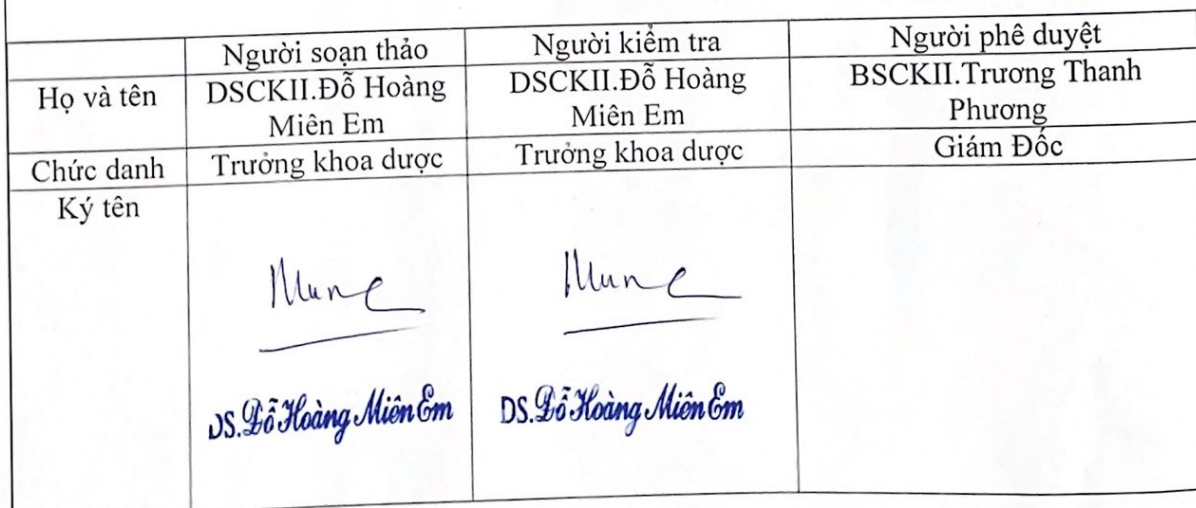 Người soạn thảo Người kiểm tra Người phê duyệt
Họ và tên DSCKII.Đỗ Hoàng DSCKII.Đỗ Hoàng BSCKII.Trương Thanh
Miên Em Miên Em Phương
Chức danh Trưởng khoa dược Trưởng khoa dược Giám Đốc
Ký tên
DS.Đỗ Hoàng Miên Em DS.Đỗ Hoàng Miên Em